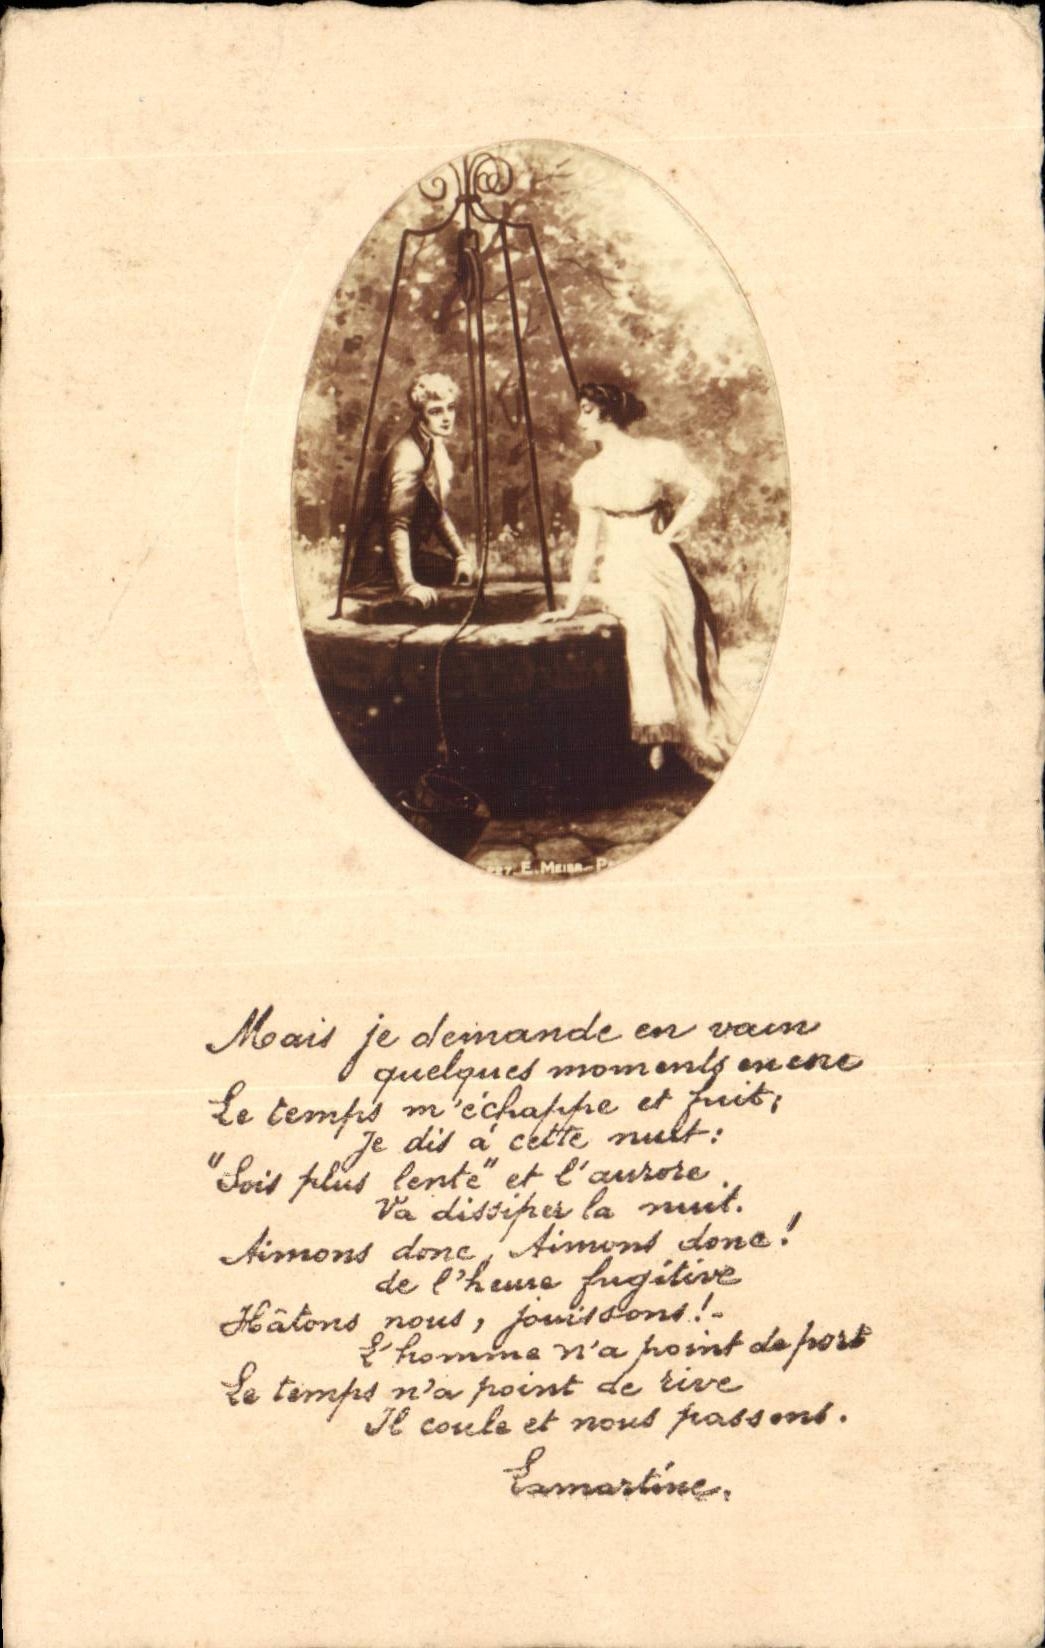 E. Meier-P
Mais je demande en vain
quelques moments encore
Le temps m'échappe et fuit;
Je dis à cette nuit:
"Sois plus lente" et l'aurore
Va dissiper la nuit.
Aimons donc, Aimons donc!
de l'heure fugitive
Hâtons nous, jouissons!-
L'homme n'a point de port
Le temps n'a point de rive
Il coule et nous passons.
Lamartine.